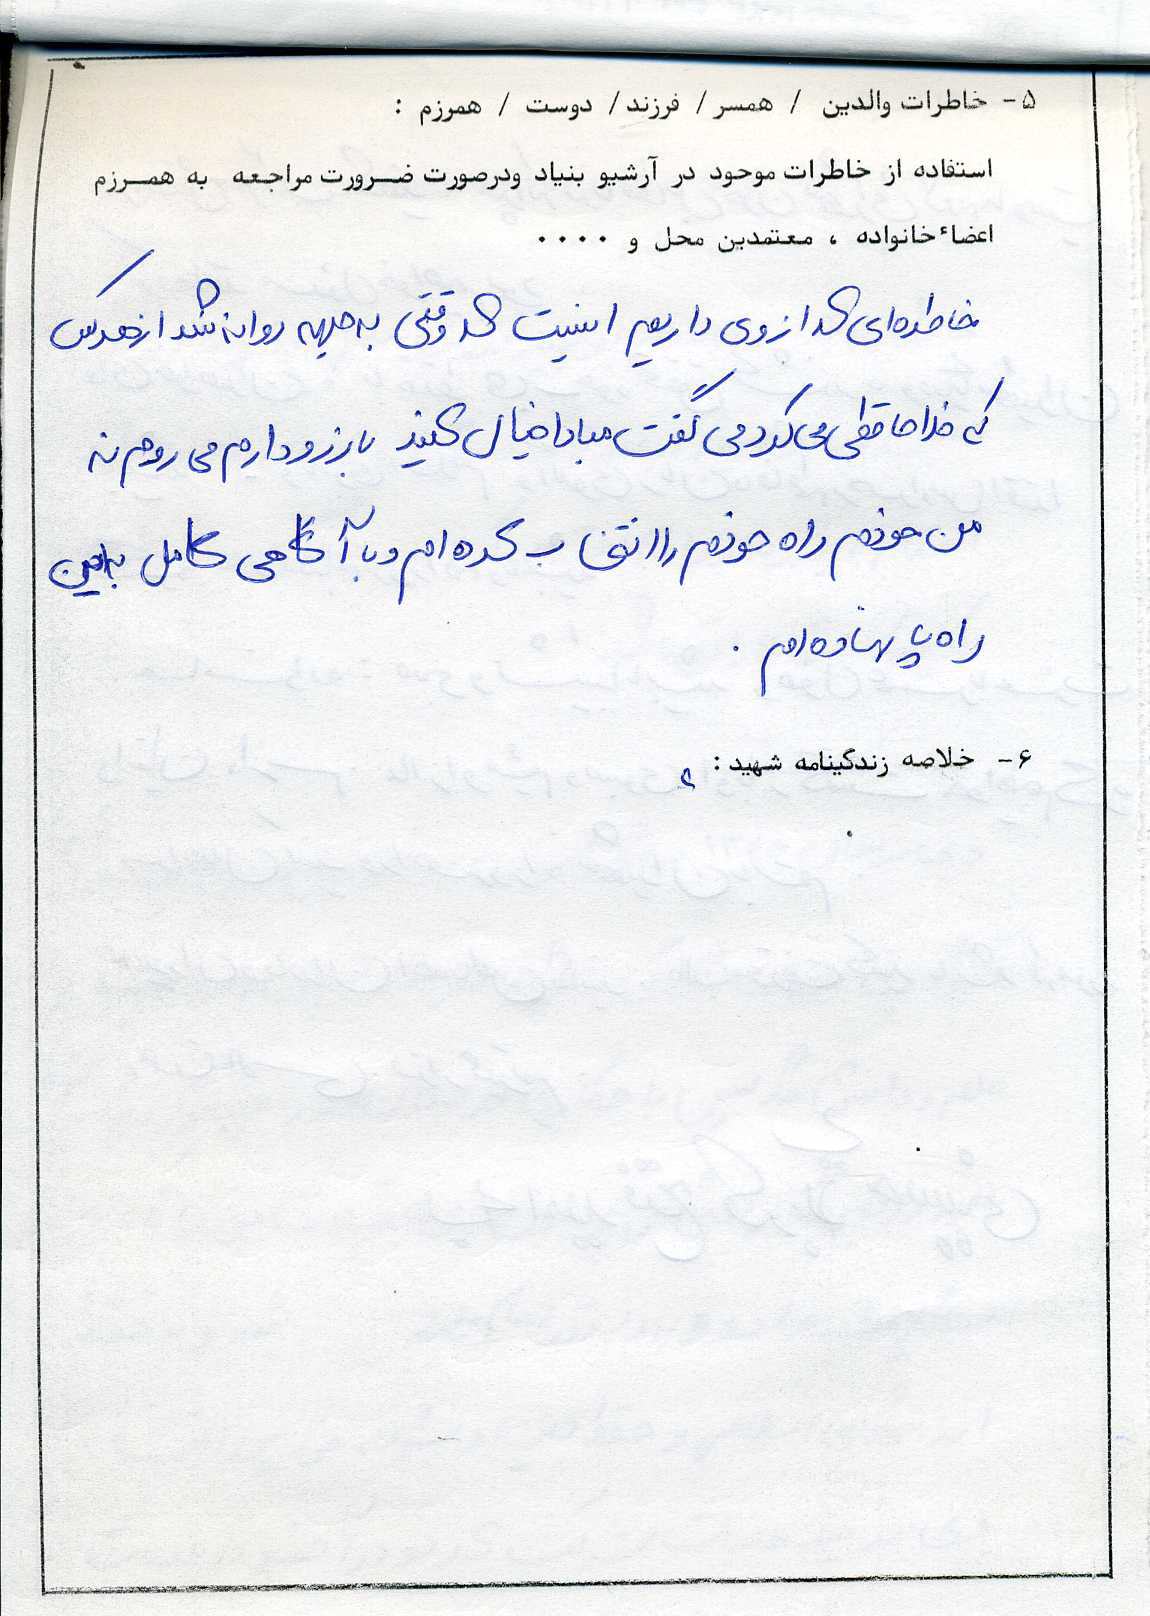 ۵- خاطرات والدین / همسر / فرزند / دوست / همرزم :
استفاده از خاطرات موحود در آرشیو بنیاد ودرصورت ضرورت مراجعه به همرزم
اعضاءخانواده ، معتمدین محل و ۰۰۰۰
خاطره‌ای که از وی داریم اینیست که وقتی به جبهه روانه شد از هرکس
که خداحافظی می‌کرد می گفت مبادا خیال کنید با بزرو دارم می روم نه
من خودم راه خودم را انتخاب کرده ام و با آگاهی کامل به این
راه پا نهاده ام .
۶- خلاصه زندگینامه شهید :